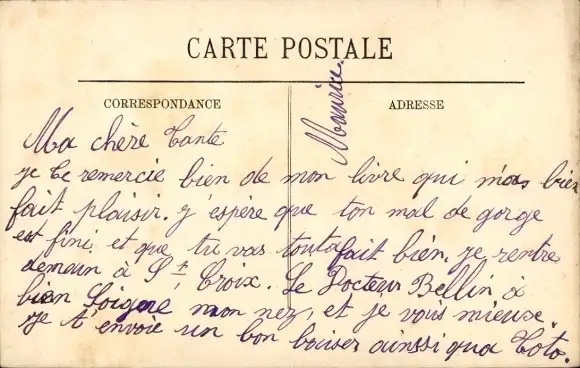 CARTE POSTALE
CORRESPONDANCE
ADRESSE
Ma chère tante
je te remercie bien de mon livre qui m'as bien
fait plaisir. j'espère que ton mal de gorge
est fini et que tu vas toutafait bien, je rentre
demain à St, Croix. Le Docteur Bellin à
bien soigné mon nez, et je vous mieuse.
je t'envoie un bon baiser ainssi qua Toto.
Maurice.